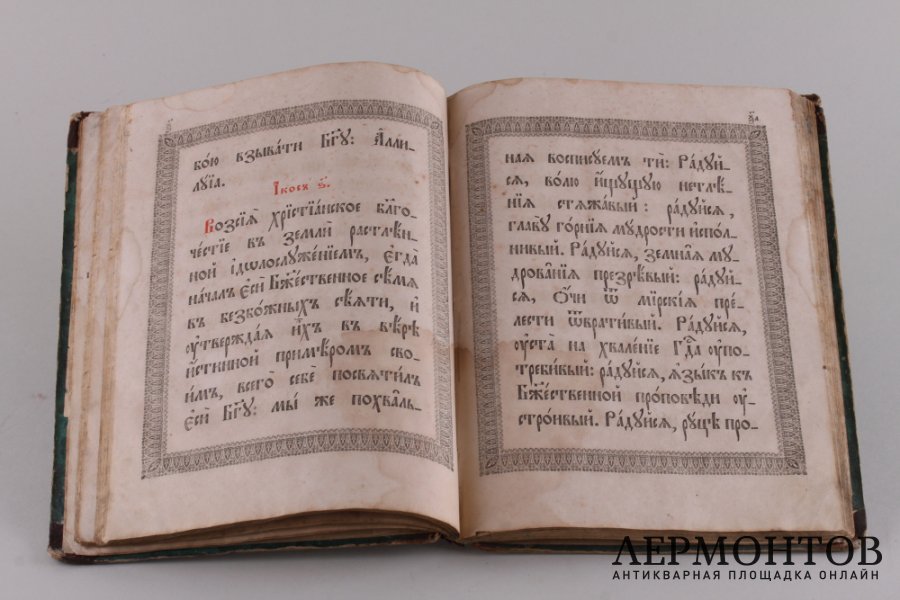 бою̀ взыва́ти Бг҃у: А҆ллилꙋ́їа.
І҆́косъ ѕ҃.
Возсїѧ̀ хрⷭ҇тїа́нское благо-
че́стїе въ землѝ растлѣ́н-
ной і҆дѡлослꙋже́нїемъ, є҆гда̀
нача́лъ є҆сѝ Бж҃е́ственное сѣ́мѧ
въ безбо́жныхъ сѣ́ѧти, и҆
ᲂу҆твержда́ѧ и҆̀хъ въ вѣ́рѣ
и҆́стинной примѣ́ромъ сво-
и҆́мъ, всего̀ себѐ посвѧти́лъ
є҆сѝ Бг҃у: мы́ же похва́ль-
наѧ воспису́емъ тѝ: Ра́дꙋй-
сѧ, во́лю и҆́щꙋщꙋю нетлѣ́-
нїѧ стѧжа́вый: ра́дꙋйсѧ,
главꙋ̀ го́рнїѧ мꙋ́дрости и҆спо́л-
нивый. Ра́дꙋйсѧ, земна́ѧ мꙋ-
дрова́нїѧ презрѣ́вый: ра́дꙋй-
сѧ, ѻ҆́чи ѿ мїрскі́ѧ пре́-
лести ѿврати́вый. Ра́дꙋйсѧ,
ᲂу҆ста̀ на хвале́нїе Гдⷭ҇а ᲂу҆по-
треби́вый: ра́дꙋйсѧ, ѧ҆зы́къ къ
Бж҃е́ственной про́повѣди ᲂу҆-
стро́ивый. Ра́дꙋйсѧ, рꙋ́цѣ про-
ЛЕРМОНТОВ
АНТИКВАРНАЯ ПЛОЩАДКА ОНЛАЙН